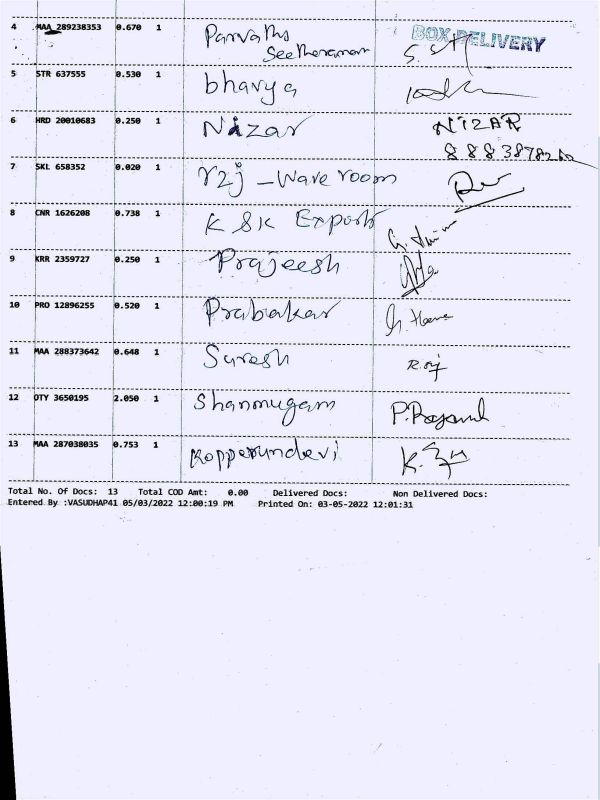 4 MAA 289238353 0.670 1 Parvathy BOX DELIVERY
Seetheraman
5 STR 637555 0.530 1 bhavya
6 HRD 20010683 0.250 1 Nizar NIZAR
7 SKL 658352 0.020 1 r2j - Wave room
8 CNR 1626208 0.738 1 K SK Exports
9 KRR 2359727 0.250 1 Prajeesh
10 PRO 12896255 0.520 1 Prabakar
11 MAA 288373642 0.648 1 Suresh
12 OTY 3650195 2.050 1 Shanmugam
13 MAA 287038035 0.753 1 Kopperundevi
Total No. Of Docs: 13 Total COD Amt: 0.00 Delivered Docs: Non Delivered Docs:
Entered By :VASUDHAP41 05/03/2022 12:00:19 PM Printed On: 03-05-2022 12:01:31